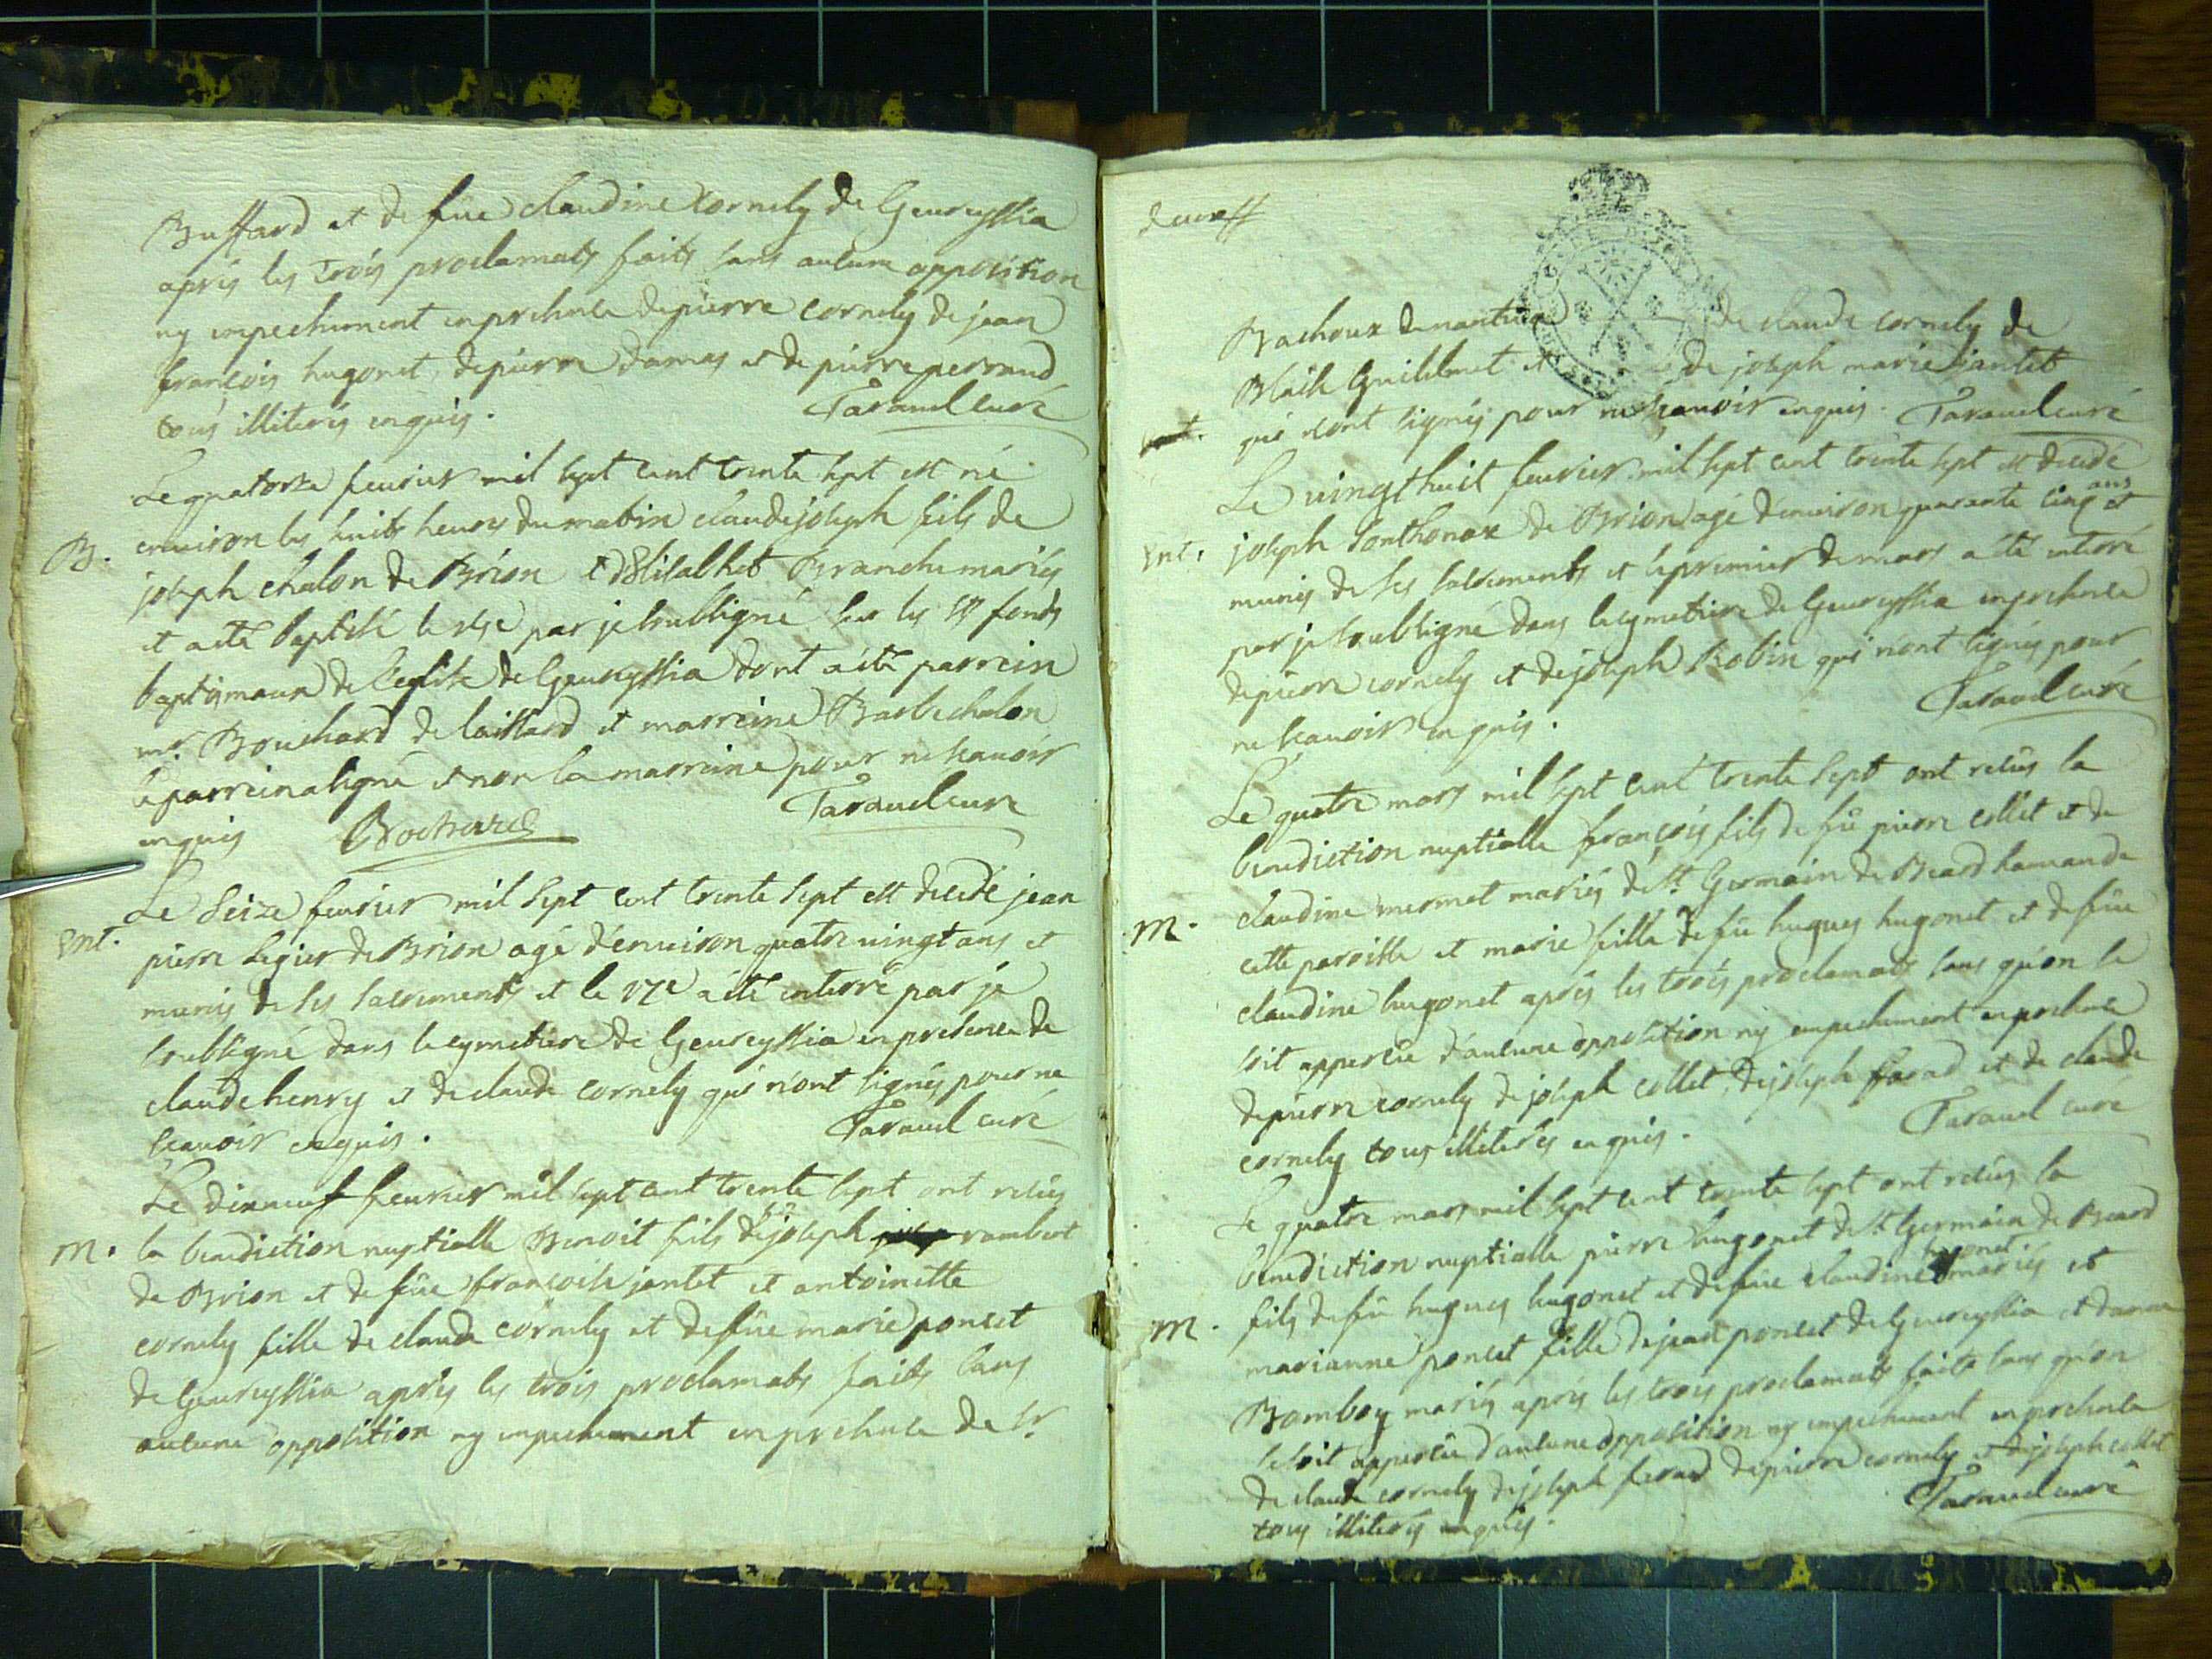 Buffard et de fûe claudine cornely de Geureyssia
après les trois proclamats faits sans aulune opposition
ny empechement en presence de pierre cornely de jean
françois hugonet, de pierre damas et de pierre perraud
tous illiterés enquis. Taravel curé
Le quatorze feurier mil sept cent trente sept est né
B. enuiron les huits heures du matin claude joseph fils de
joseph chalon de Brion et d'Elisabhet Branche mariés
et a eté baptisé le par je soubsigné sur les fonds
baptismaux de l'eglise de Geureyssia dont a été parrein
mr. Bouchard de et marreine Barbe chalon
le parrein a signé et non la marreine pour ne scauoir
enquis Bochard Taravel curé
Le seize feurier mil sept cent trente sept est decedé jean
Ent. pierre Legier de Brion agé d'enuiron quatre uingt ans et
munis de ses sacrements et le 17e a été enterré par je
soubsigné dans le cymetiere de Geureyssia en presence de
claude henry et de claude cornely qui n'ont signés pour ne
scauoir enquis. Taravel curé
Le dixneuf feurier mil sept cent trente sept ont reçus
m. la benediction nuptialle Benoit fils de joseph rambert
de Brion et de fûe françoise jantet et antoinette
cornely fille de claude cornely et de fûe marie poncet
de Geureyssia après les trois proclamats faits sans
aulune opposition ny empechement en presence de Sr.
deuxff
Bachoux de nantua de claude cornely de
Blaise Guillelmet et de joseph marie jantet
qui n'ont signés pour ne scauoir enquis. Taravel curé
Le uingt huit feurier mil sept cent trente sept est decedé
ans
Ent. joseph Sonthonax de Brion agé d'enuiron quarante cinq et
munis de ses sacrements et le premier de mars a été enterré
par je soubsigné dans le cymetiere de Geureyssia en presence
de pierre cornely et de joseph Robin qui n'ont signés pour
ne scauoir enquis. Taravel curé
Le quatre mars mil sept cent trente sept ont reçus la
benediction nuptialle françois fils de fû pierre collet et de
claudine mermet mariés de St. Germain de Beard hameau de
m. cette paroisse et marie fille de fû hugues hugonet et de fûe
claudine hugonet après les trois proclamats sans qu'on se
soit apperçu d'aulune opposition ny empechement en presence
de pierre cornely de joseph collet, de joseph farad et de claude
cornely tous illiterés enquis. Taravel curé
Le quatre mars mil sept cent trente sept ont reçus la
benediction nuptialle pierre hugonet de St. Germain de Beard
hugonet
m. fils de fû hugues hugonet et de fûe claudine mariés et
marianne poncet fille de jean poncet de Geureyssia et d'anne
Bamboy mariés après les trois proclamats faits sans qu'on
se soit apperçu d'aulune opposition ny empechement en presence
de claude cornely de joseph farad de pierre cornely et de joseph collet
tous illiterés enquis. Taravel curé